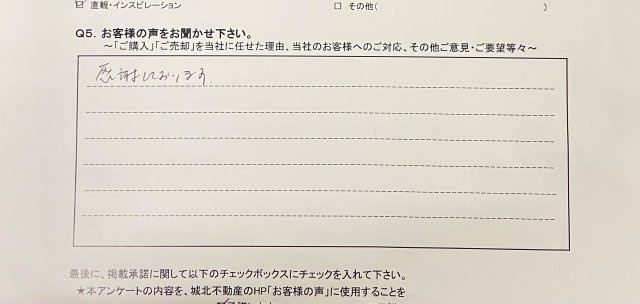 ☑ 直観・インスピレーション　□ その他(　)
Q5. お客様の声をお聞かせ下さい。
～「ご購入」「ご売却」を当社に任せた理由、当社のお客様へのご対応、その他ご意見・ご要望等々～
感謝しております。
最後に、掲載承諾に関して以下のチェックボックスにチェックを入れて下さい。
★本アンケートの内容を、城北不動産のHP「お客様の声」に使用することを